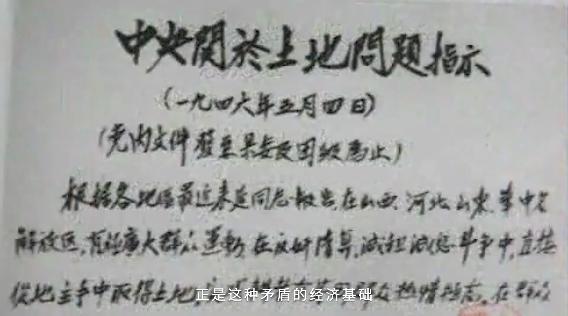 中央關於土地問題指示
(一九四六年五月四日)
(党内文件 發至县委及团級為止)
根据各地區最近来延同志報告,在山西、河北、山東、華中各
解放區,有極廣大群众運動,在反奸清算,減租減息斗争中,直接
從地主手中取得土地 热情極高。在群众
正是这种矛盾的经济基础